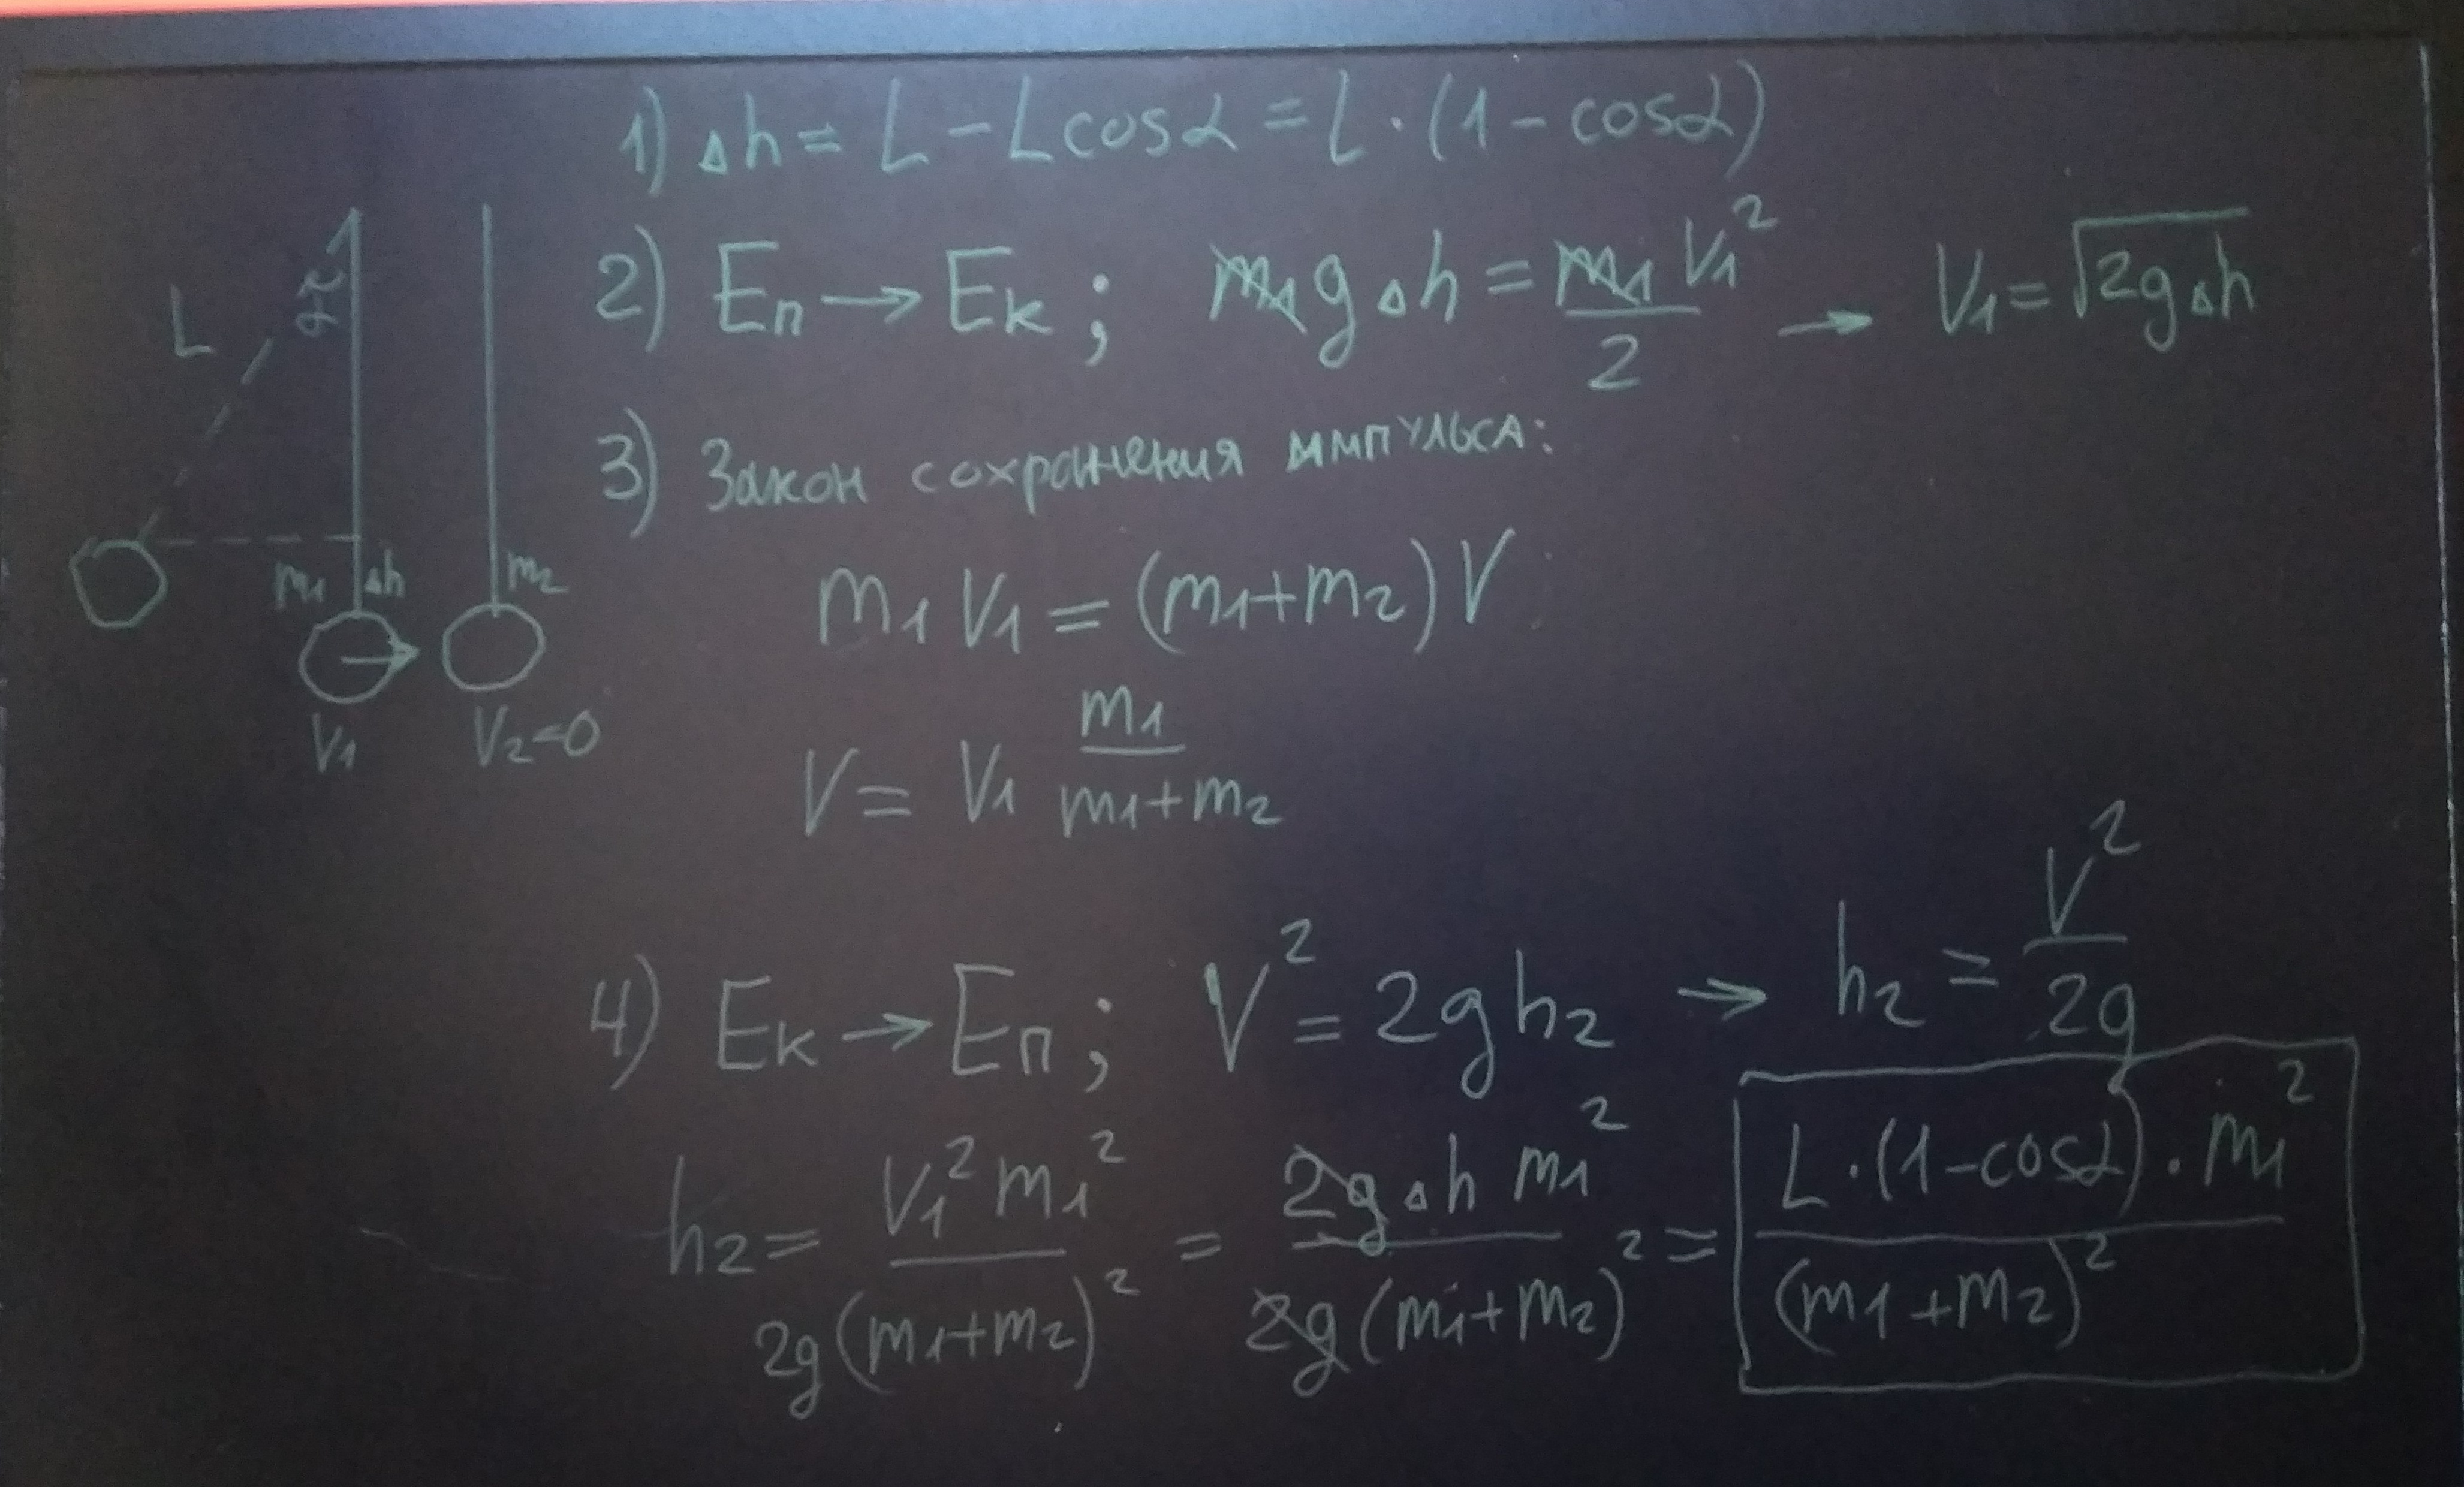 1) Δh = L - L cosα = L · (1 - cosα)
2) Eп → Eк ; m₁gΔh = m₁V₁²/2 → V₁ = √2gΔh
α
L
3) Закон сохранения импульса:
m₁ Δh m₂
m₁V₁ = (m₁+m₂)V
V₁ V₂=0
V = V₁ m₁/m₁+m₂
4) Eк → Eп ; V² = 2gh₂ → h₂ = V²/2g
h₂ = V₁²m₁²/2g(m₁+m₂)² = 2gΔh m₁²/2g(m₁+m₂)² = L·(1-cosα)·m₁²/(m₁+m₂)²